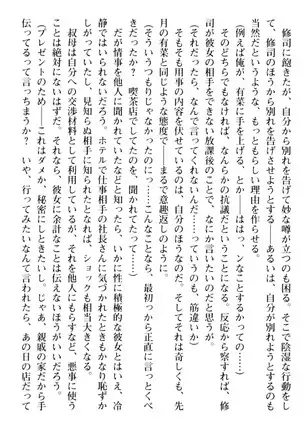 修司に飽きたが、自分から別れを告げて妙な噂が立つのも困る。そこで陰湿な行動をし
て、修司のほうから別れを告げさせようとする……。あるいは、自分が別れようとすると
当然だというような、もっともらしい理由を作らせる。
（例えば俺が、有菜に手を上げる、とか――はは っ、ンなことするかっての……）
そのどちらでもなければ、なんらかの抗議だということになる。反応から察すれば、修
司が彼女の相手をできない放課後のことで、なにか言いたいのだと思うが。
（それならそうと、なんで言ってくれないんだ……っていうのも、筋違いか）
そもそも用事の内容を伏せているのは、自分のほうなのだ。そしてそれは奇しくも、先
月の有菜と同じような態度で――まるで意趣返しのように。
（そういうつもりじゃなかったのに……こんなことなら、最初っから正直に言っとくべ
きだったか？　喫茶店でしてたのを、聞かれてたって……）
だが情事を他人に聞かれていたなどと知ったら、いかに性に積極的な彼女とはいえ、冷
静ではいられないだろう。ホテルで仕事相手の社長さんに気づかれたときもかなり恥ずか
しがっていたし、見知らぬ相手に知られたとなれば、ショックも相当大きくなる。
叔母は自分への交渉材料として利用しているが、それを他人にもらすなど、悪事に使う
ことは絶対にないはずだ。それなら、彼女には余計なことは伝えないほうがいいだろう。
（プレゼントのため――これはダメか、秘密にしときたいし。じゃあ、親戚の家だから手
伝ってるって言っちまうか？　いや、行ってみたいなんて言われたら、あの日の店だって